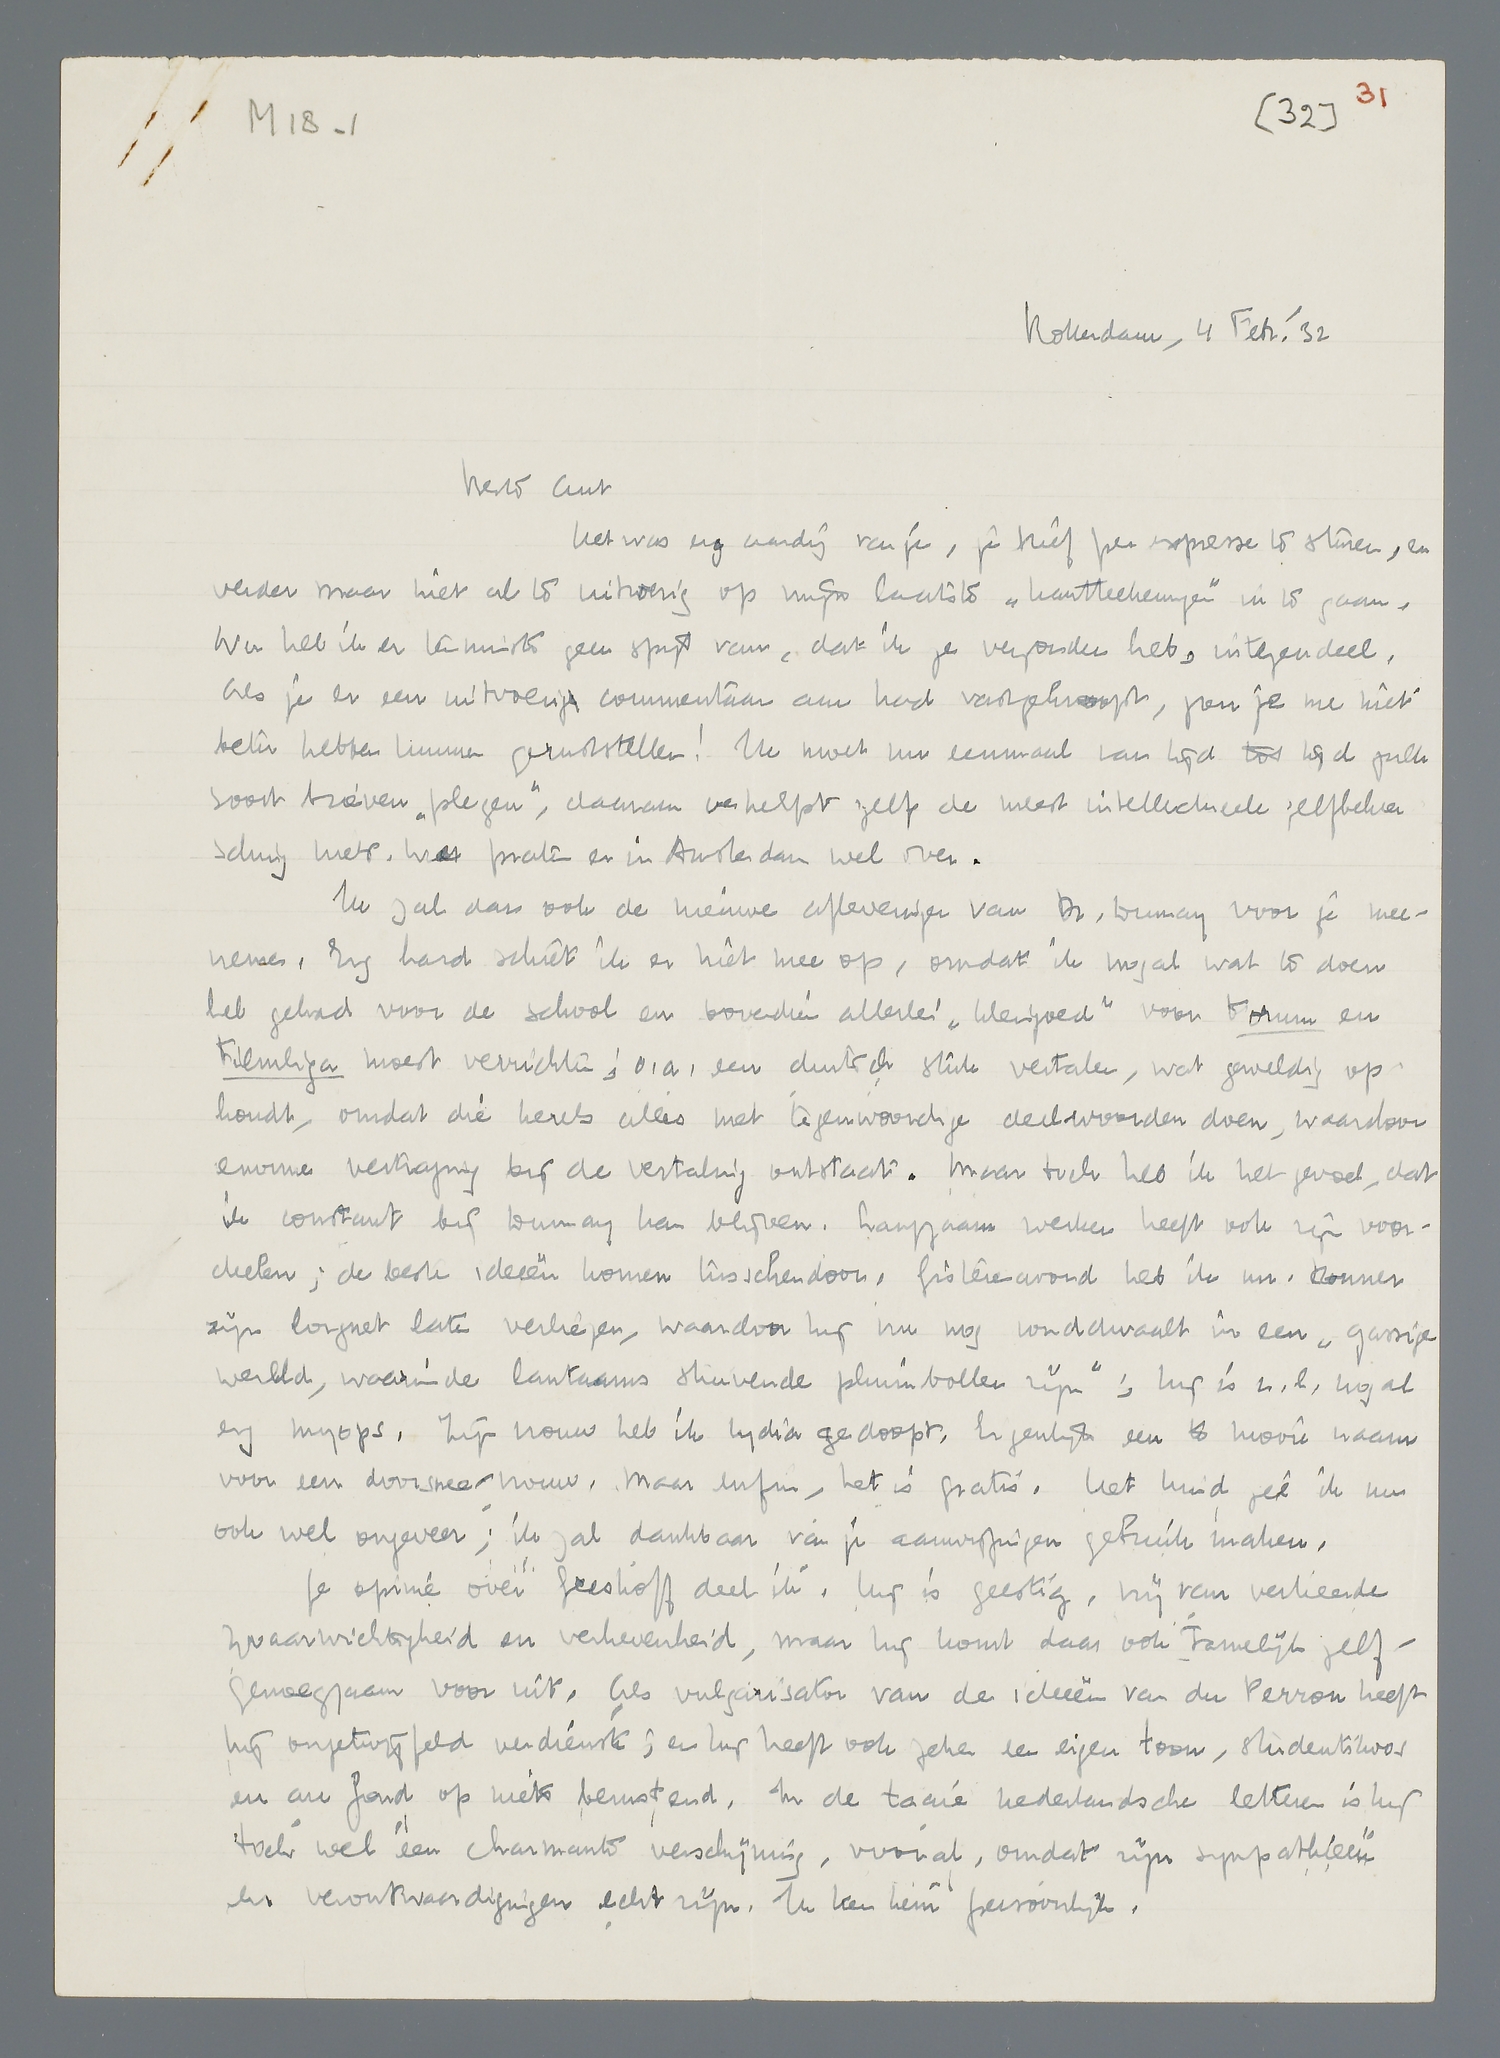 M 18-1
[32] 31
Rotterdam, 4 Febr. '32
Beste Ant
Het was erg aardig van je, je brief per expresse te sturen, en
verder maar niet al te uitvoerig op mijn laatste „hartteekeningen" in te gaan.
Nu heb ik er tenminste geen spijt van, dat ik ze verzonden heb, integendeel.
Als je er een uitvoerige commentaar aan had vastgeknoopt, zou je me niet
beter hebben kunnen geruststellen! Ik moet nu eenmaal van tijd tot tijd zulk
soort brieven „plegen", daaraan verhelpt zelfs de meest intellectueele zelfbeheer
sching niets. We praten er in Amsterdam wel over.
Ik zal dan ook de nieuwe afleveringen van Dr. Dumay voor je mee-
nemen. Erg hard schiet ik er niet mee op, omdat ik nogal wat te doen
heb gehad voor de school en bovendien allerlei „kleingoed" voor Forum en
Filmliga moest verrichten; o.a. een duitsch stuk vertalen, wat geweldig op
houdt, omdat die kerels alles met tegenwoordige deelwoorden doen, waardoor
enorme vertraging bij de vertaling ontstaat. Maar toch heb ik het gevoel, dat
ik constant bij Dumay kan blijven. Langzaam werken heeft ook zijn voor-
deelen; de beste ideeën komen tusschendoor. Gisterenavond heb ik mr. Conner
zijn lorgnet laten verliezen, waardoor hij nu nog ronddwaalt in een „gazige
wereld, waarin de lantaarns stuivende pluimbollen zijn"; hij is n.l. nogal
erg myops. Zijn vrouw heb ik Lydia gedoopt. Eigenlijk een te mooie naam
voor een doorsnee-vrouw. Maar enfin, het is gratis. Het kind zie ik nu
ook wel ongeveer; ik zal dankbaar van je aanwijzingen gebruik maken.
Je opinie over Greshoff deel ik. Hij is geestig, vrij van verkeerde
zwaarwichtigheid en verhevenheid, maar hij komt daar ook tamelijk zelf-
genoegzaam voor uit. Als vulgarisator van de ideeën van du Perron heeft
hij ongetwijfeld verdienste; en hij heeft ook zeker een eigen toon, studentikoos
en au fond op niets berustend. In de taaie nederlandsche letteren is hij
toch wel een charmante verschijning, vooral, omdat zijn sympathieën
en verontwaardigingen echt zijn. Ik ken hem persoonlijk.